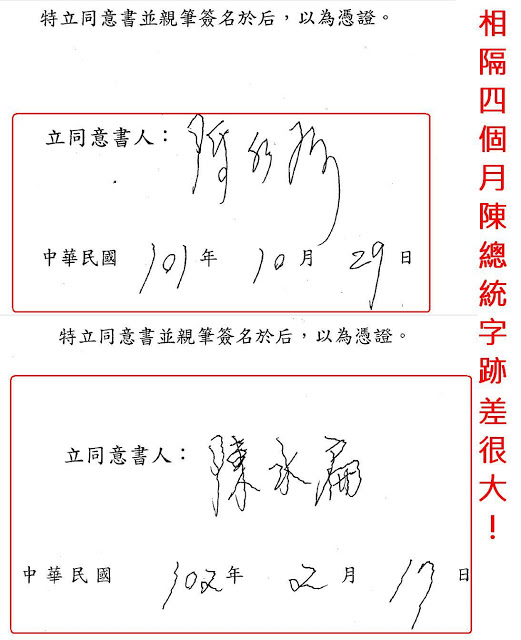 特立同意書並親筆簽名於后，以為憑證。
立同意書人：
中華民國 101 年 10 月 29 日
特立同意書並親筆簽名於后，以為憑證。
立同意書人： 陳水扁
中華民國 102 年 2 月 17 日
相隔四個月陳總統字跡差很大！